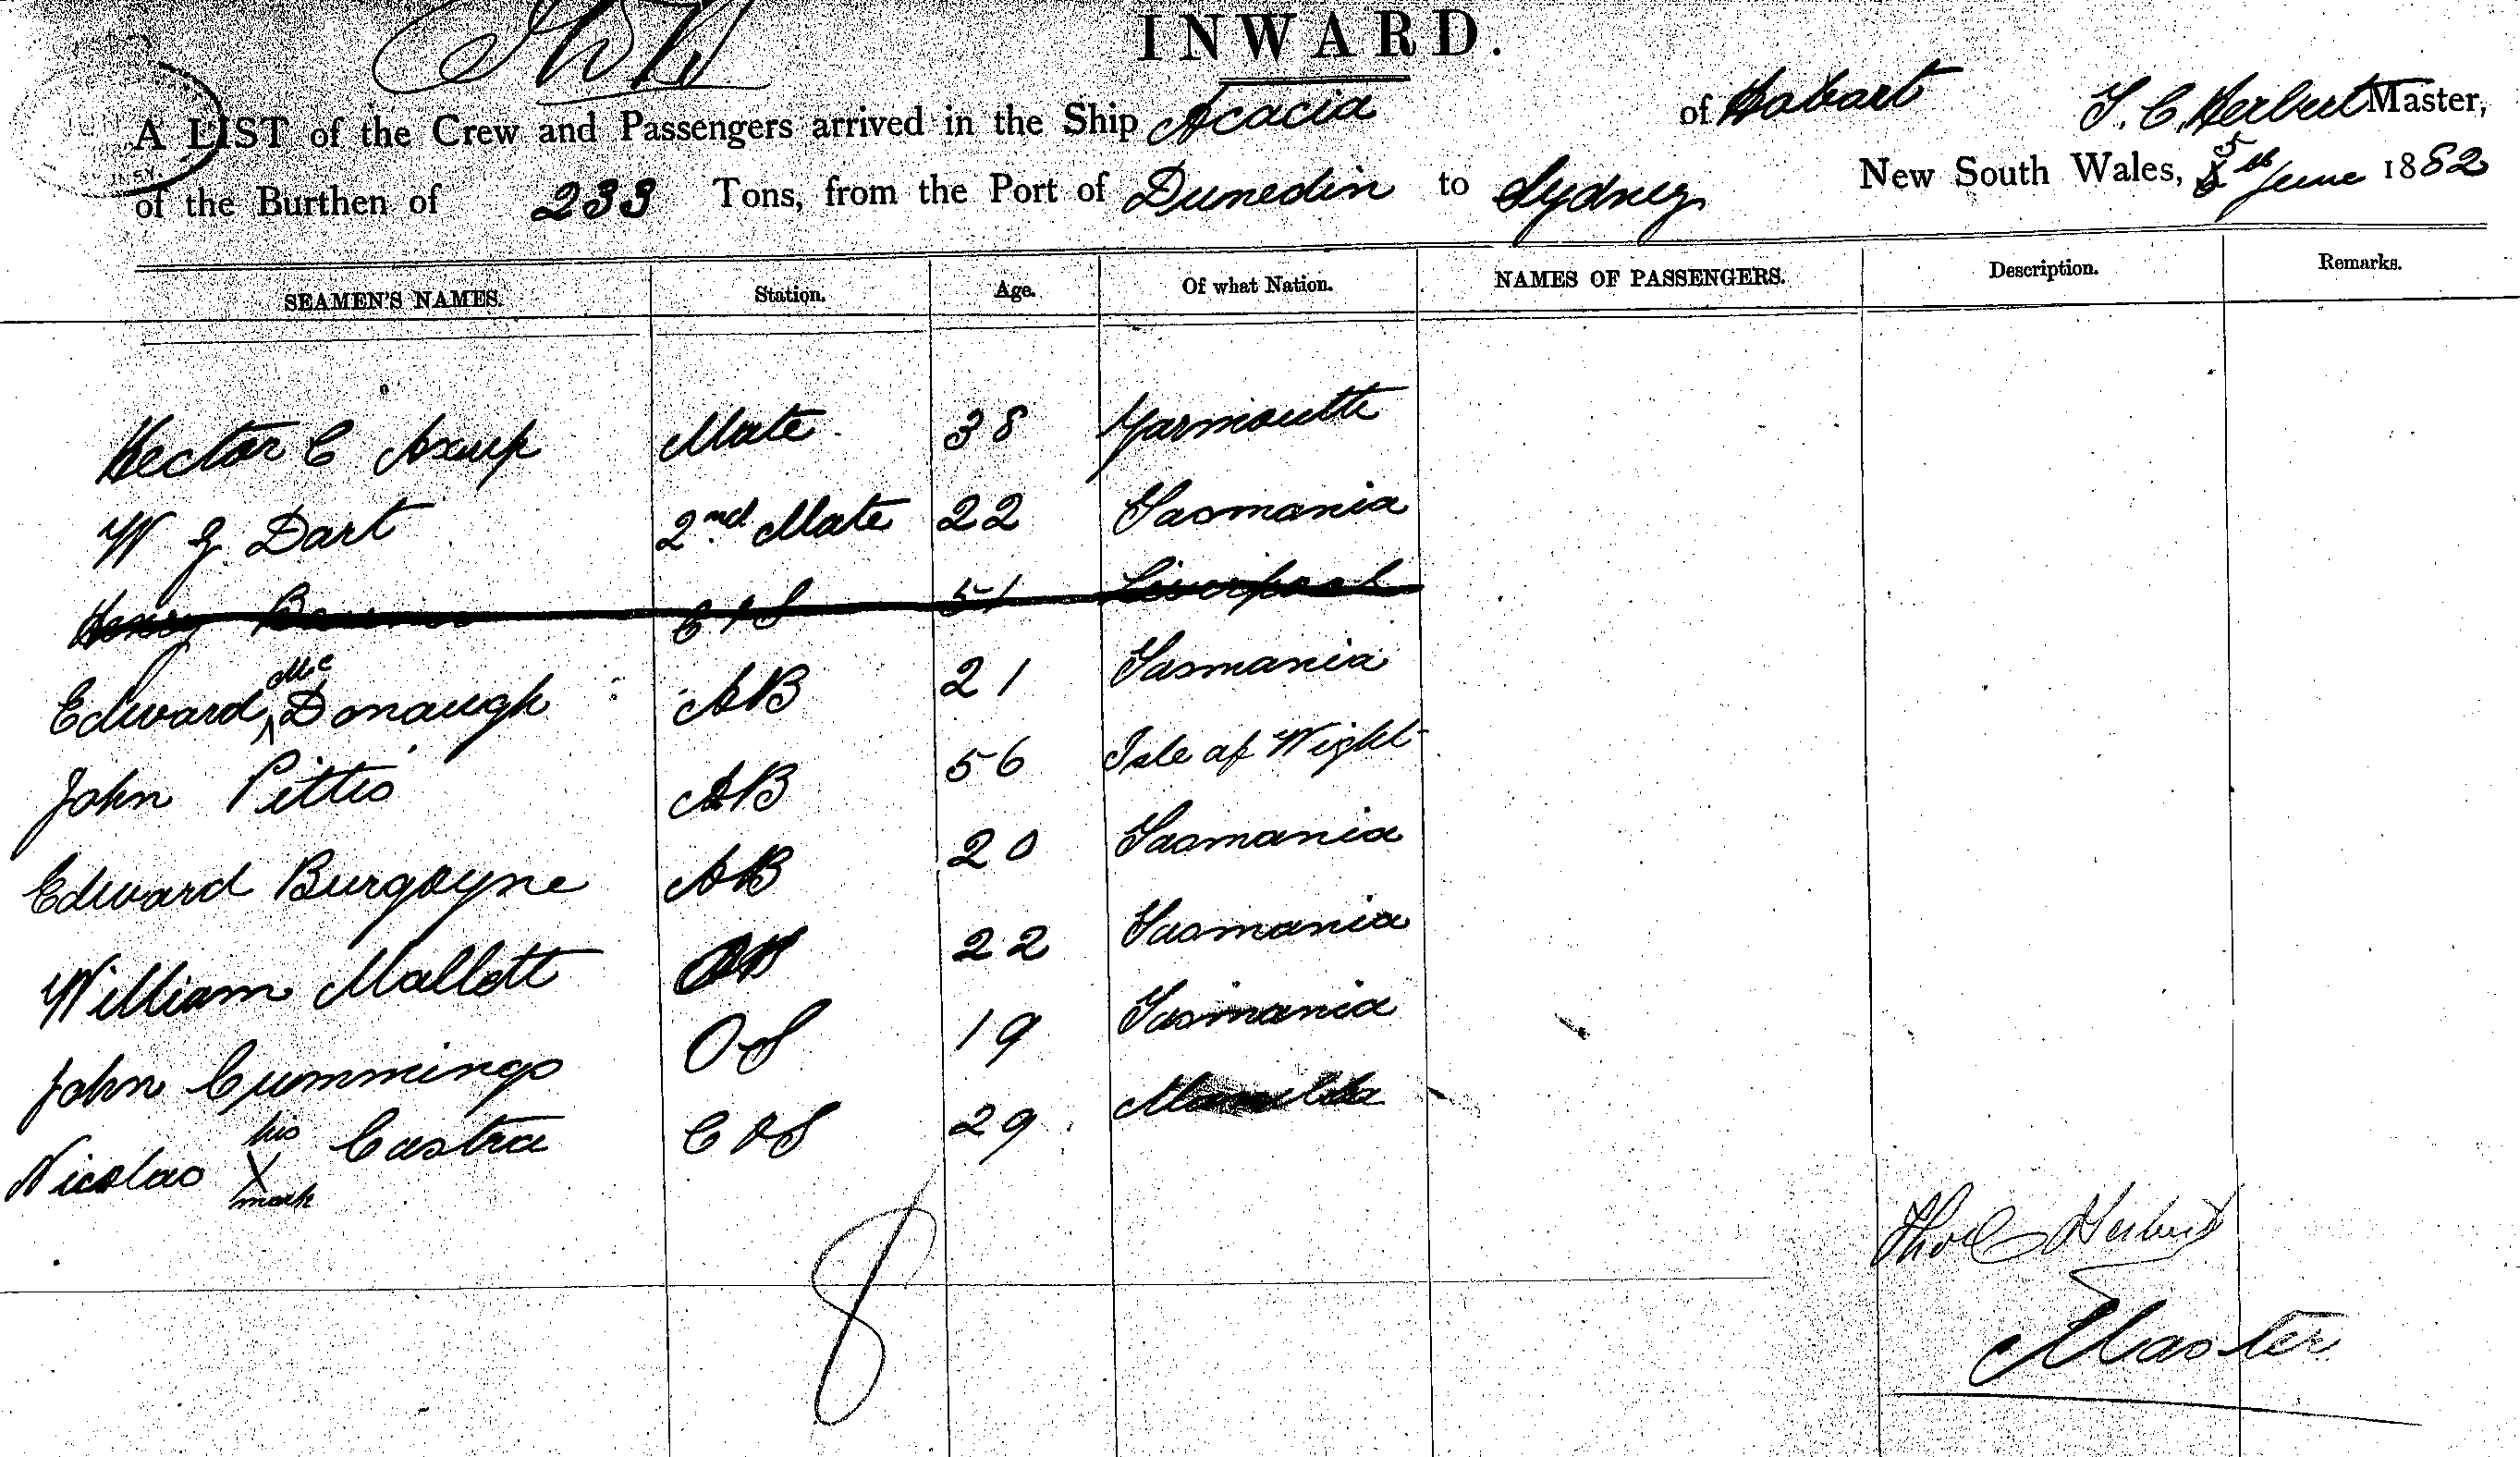 INWARD.
A LIST of the Crew and Passengers arrived in the Ship Acacia of Hobart T. C. Herbert Master,
of the Burthen of 233 Tons, from the Port of Dunedin to Sydney New South Wales, 5th June 1882
SEAMEN'S NAMES. Station. Age. Of what Nation. NAMES OF PASSENGERS. Description. Remarks.
Hector C Axup Mate 38 Yarmouth
W G Dart 2nd Mate 22 Tasmania
Henry C & S 51 Liverpool
Edward McDonaugh AB 21 Tasmania
John Pittis AB 56 Isle of Wight
Edward Burgoyne AB 20 Tasmania
William Mallett 22 Tasmania
John Cummings OS 19 Tasmania
Nicolas his X mark Castra C & S 29 Manilla
8
Thos C Herbert
Master